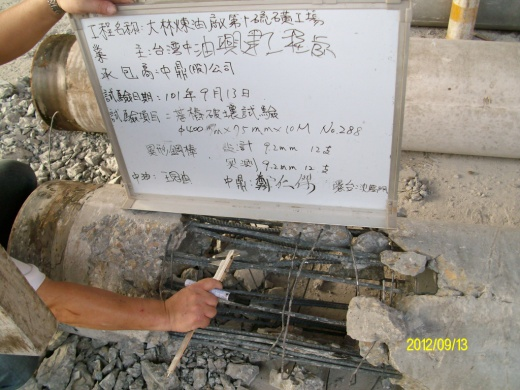 工程名稱:大林煉油廠第十硫磺工場
業 主:台灣中油興建工程處
承包商:中鼎(股)公司
試驗日期:101年9月13日
試驗項目:基樁破壞試驗
φ400mm×75mm×10M No.288
異形鋼棒 設計 9.2mm 12支
實測 9.2mm 12支
中油: 中鼎:
2012/09/13